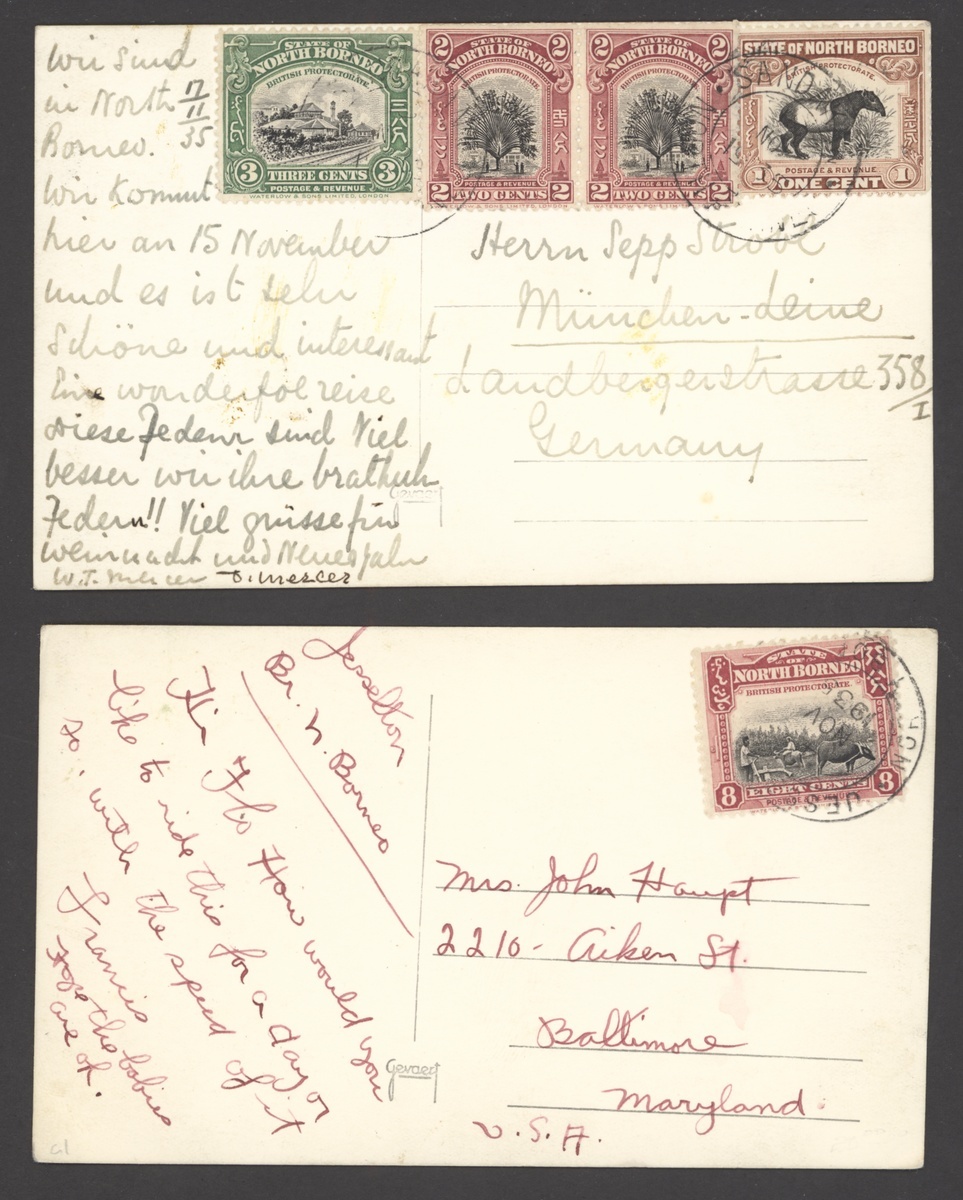 Wir sind
in North 17/11/35
Borneo.
Wir kommut
hier an 15 November
und es ist sehr
Schöne und interessant
Eine wonderfol reise
diese Federn sind Viel
besser wir ihre
Federn!! Viel grüsse für
weinnacht und Neues Jahr
W.T. Mercer D. Mercer
STATE OF
NORTH BORNEO
BRITISH PROTECTORATE.
3 THREE CENTS 3
POSTAGE & REVENUE
WATERLOW & SONS LIMITED, LONDON
2 STATE OF 2
NORTH BORNEO
BRITISH PROTECTORATE.
POSTAGE & REVENUE
2 TWO CENTS 2
2 STATE OF 2
NORTH BORNEO
BRITISH PROTECTORATE.
POSTAGE & REVENUE
2 TWO CENTS 2
STATE OF NORTH BORNEO
BRITISH PROTECTORATE.
POSTAGE & REVENUE
1 ONE CENT 1
SAND
Herrn Sepp
München-Leine
Landbergerstrasse 358/I
Germany
Gevaert
Jesselton
Br. N. Borneo
Hi Flo How would you
like to ride this for a day or
so, with the speed of it
Francis
Hope the babies
are ok.
STATE
OF
NORTH BORNEO
BRITISH PROTECTORATE.
8 EIGHT CENTS 8
POSTAGE & REVENUE
NOV
JES
Mrs. John Haupt
2210- Aiken St.
Baltimore
Maryland.
U.S.A.
Gevaert